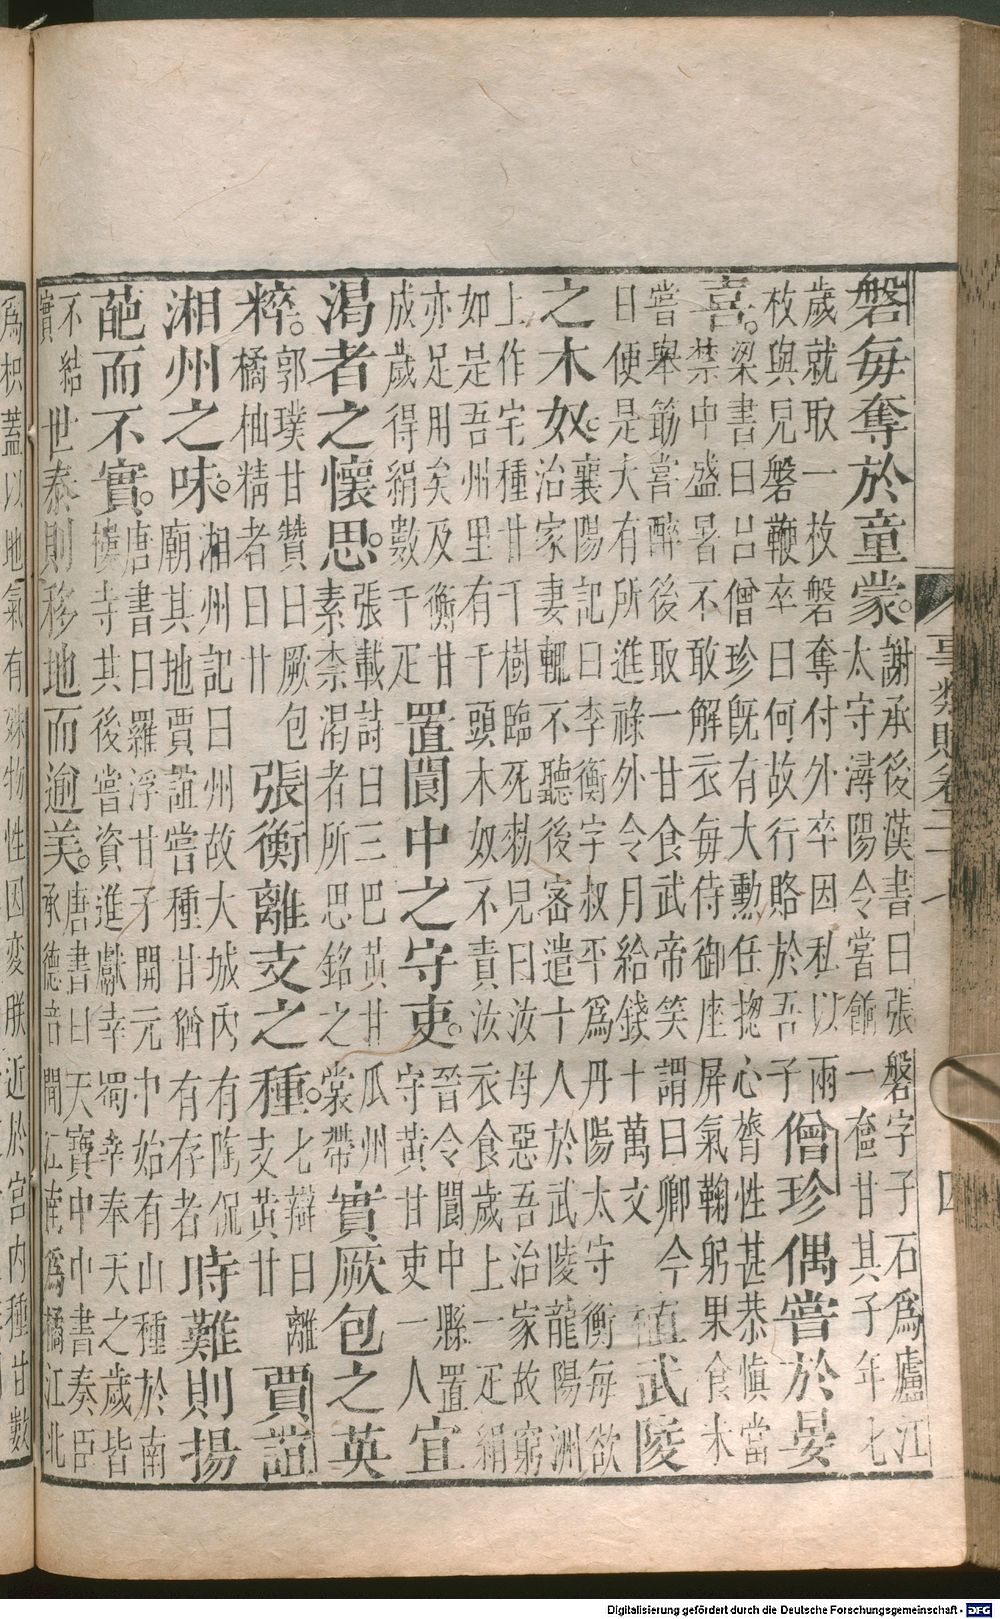 磐每奪於童蒙。謝承後漢書曰張磐字子石為廬江
太守潯陽令嘗餉一奩甘其子年七
歲就取一枚磐奪付外卒因私以兩
枚與兒磐鞭卒曰何故行賂於吾子僧珍偶嘗於晏
喜。梁書曰呂僧珍既有大勲任揔心膂性甚恭慎當
禁中盛暑不敢解衣每侍御座屏氣鞠躬果食未
嘗舉筯嘗醉後取一甘食武帝笑謂曰卿今
日便是大有所進祿外令月給錢十萬文植武陵
之木奴。襄陽記曰李衡字叔平為丹陽太守衡每欲
治家妻輒不聽後密遣十人於武陵龍陽洲
上作宅種甘千樹臨死勑兒曰汝母惡吾治家故窮
如是吾州里有千頭木奴不責汝衣食歲上一疋絹
亦足用矣及衡甘
成歲得絹數千疋置閬中之守吏。晉令閬中縣置
守黃甘吏一人宜
渴者之懷思。張載詩曰三巴黃甘瓜州
素柰渴者所思銘之裳帶實厥包之英
粹。郭璞甘贊曰厥包
橘柚精者曰甘張衡離支之種。七辯曰離
支黃甘賈誼
湘州之味。湘州記曰州故大城內有陶侃
廟其地賈誼嘗種甘猶有存者時難則揚
葩而不實。唐書曰羅浮甘子開元中始有山種於南
樓寺其後嘗資進獻幸蜀幸奉天之歲皆
不結
實世泰則移地而逾美。唐書曰天寶中中書奏臣
承德音聞江南為橘江北
事類賦卷二十七
四
為枳蓋以地氣有殊物性因變朕近於宮內種甘數
Digitalisierung gefördert durch die Deutsche Forschungsgemeinschaft - DFG